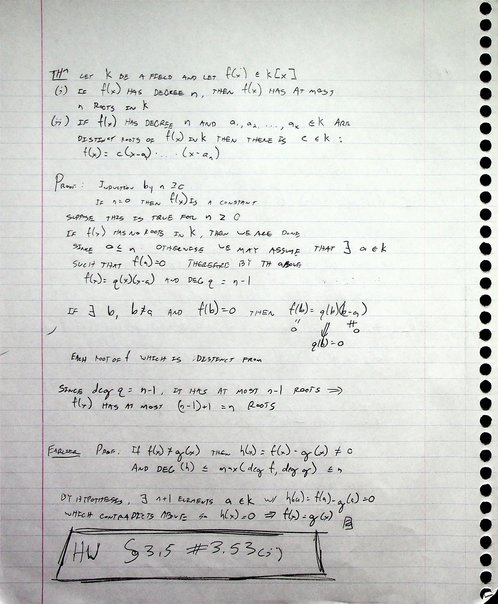 THm LET K BE A FIELD AND LET f(x) ∈ K[x]
(i) IF f(x) HAS DEGREE n, THEN f(x) HAS AT MOST
n ROOTS IN K
(ii) IF f(x) HAS DEGREE n AND a₁, a₂, ..., aₙ ∈ K ARE
DISTINCT ROOTS OF f(x) IN K THEN THERE IS C ∈ K :
f(x) = c(x-a) ..... (x-aₙ)
PROOF: INDUCTION by n ≥ 0
IF n=0 THEN f(x) IS A CONSTANT
SUPPOSE THIS IS TRUE FOR n ≥ 0
IF f(x) HAS NO ROOTS IN K, THEN WE ARE DONE
SINCE 0 ≤ n OTHERWISE WE MAY ASSUME THAT ∃ a ∈ K
SUCH THAT f(a)=0 THEREFORE BY TH ABOVE
f(x) = q(x)(x-a) AND DEG q = n-1
IF ∃ b, b≠a AND f(b)=0 THEN f(b) = q(b)(b-a)
0 ⇓ 0
q(b)=0
EACH ROOT OF f WHICH IS DISTINCT FROM
SINCE deg q = n-1, IT HAS AT MOST n-1 ROOTS ⇒
f(x) HAS AT MOST (n-1)+1 = n ROOTS
EARLIER PROOF: IF f(x) ≠ g(x) THEN h(x) = f(x) - g(x) ≠ 0
AND DEG(h) ≤ max(deg f, deg g) ≤ n
BY HYPOTHESES, ∃ n+1 ELEMENTS a ∈ K w/ h(a) = f(a) - g(a) = 0
WHICH CONTRADICTS ABOVE SO h(x) = 0 ⇒ f(x) = g(x)
HW § 3.5 # 3.53(i)